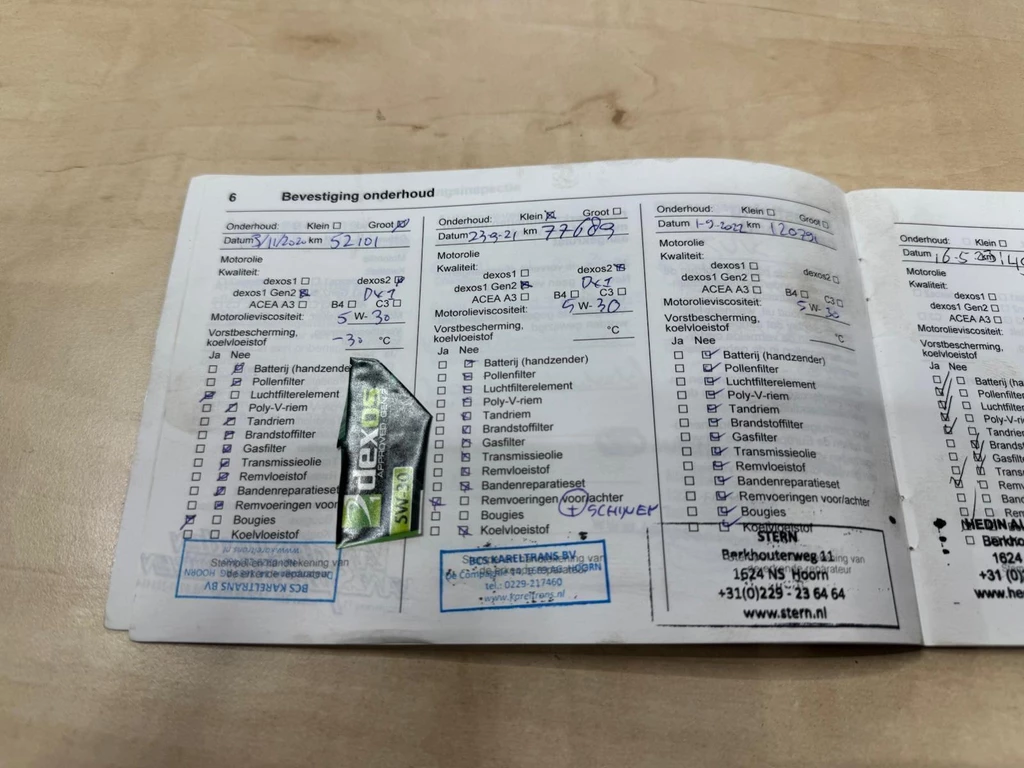 6 Bevestiging onderhoud
Onderhoud: Klein Groot
Datum 3/11/2020 km 52101
Motorolie
Kwaliteit:
dexos1 dexos2
dexos1 Gen2
ACEA A3 B4 C3
Motorolieviscositeit: 5 W- 30
Vorstbescherming,
koelvloeistof -30 °C
Ja Nee
Batterij (handzende
Pollenfilter
Luchtfilterelement
Poly-V-riem
Tandriem
Brandstoffilter
Gasfilter
Transmissieolie
Remvloeistof
Bandenreparatieset
Remvoeringen voor
Bougies
Koelvloeistof
Stempel en handtekening van
de erkende reparateur
BCS KARELTRANS BV
dexos
APPROVED
5W-30
Onderhoud: Klein Groot
Datum 23-9-21 km 77689
Motorolie
Kwaliteit:
dexos1 dexos2
dexos1 Gen2
ACEA A3 B4 C3
Motorolieviscositeit: 5 W- 30
Vorstbescherming,
koelvloeistof °C
Ja Nee
Batterij (handzender)
Pollenfilter
Luchtfilterelement
Poly-V-riem
Tandriem
Brandstoffilter
Gasfilter
Transmissieolie
Remvloeistof
Bandenreparatieset
Remvoeringen voor/achter
+ SCHIJVEN
Bougies
Koelvloeistof
BCS KARELTRANS BV
tel.: 0229-217460
www.kareltrans.nl
Onderhoud: Klein Groot
Datum 1-9-2022 km 120791
Motorolie
Kwaliteit:
dexos1 dexos2
dexos1 Gen2
ACEA A3 B4 C3
Motorolieviscositeit: 5 W- 30
Vorstbescherming,
koelvloeistof °C
Ja Nee
Batterij (handzender)
Pollenfilter
Luchtfilterelement
Poly-V-riem
Tandriem
Brandstoffilter
Gasfilter
Transmissieolie
Remvloeistof
Bandenreparatieset
Remvoeringen voor/achter
Bougies
Koelvloeistof
STERN
Berkhouterweg 11
1624 NS Hoorn
+31(0)229 - 23 64 64
www.stern.nl
Onderhoud: Klein
Datum 16-5
Motorolie
Kwaliteit:
dexos1
dexos1 Gen2
ACEA A3
Motorolieviscositeit:
Vorstbescherming,
koelvloeistof
Ja Nee
Batterij (ha
Pollenfilter
Luchtfilte
Poly-V-ri
Tandrie
Brandst
Gasfilte
Transm
Remv
Band
Rem
HEDIN AU
Berkho
1624
+31 (0)
www.he